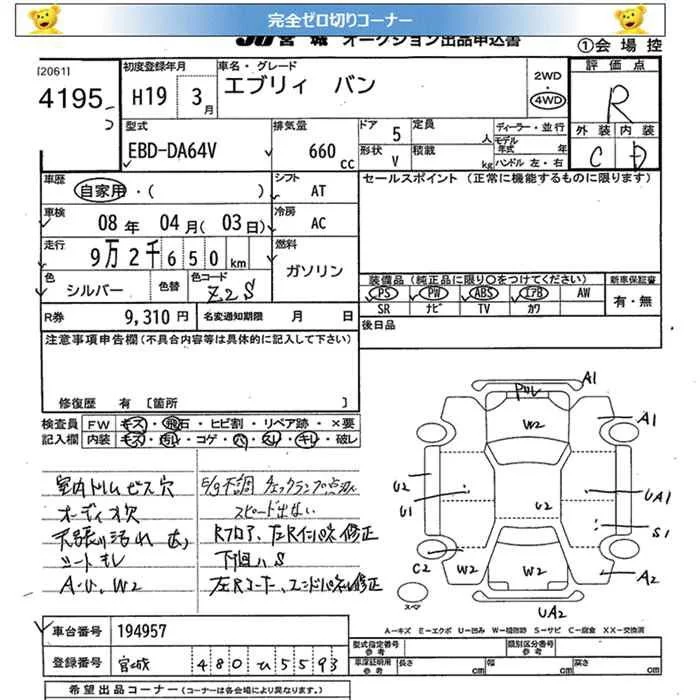 完全ゼロ切りコーナー
JU宮城 オークション出品申込書
①会場控
[2061]
4195
初度登録年月
H19 3月
車名・グレード
エブリィ バン
2WD
・
4WD
評価点
R
外装 内装
C D
型式
EBD-DA64V
排気量
660 cc
ドア 5
形状 V
定員 人
積載 kg
ディーラー・並行
モデル年式 年
ハンドル 左・右
車歴
自家用・( )
シフト AT
車検
08年 04月(03日)
冷房 AC
走行
9万2千650km
燃料
ガソリン
色
シルバー
色替
色コード
Z2S
R券 9,310円
名変通知期限 月 日
セールスポイント (正常に機能するものに限ります)
装備品 (純正品に限り○をつけてください)
PS PW ABS エアB AW
SR ナビ TV カワ
新車保証書
有・無
後日品
注意事項申告欄(不具合内容等は具体的に記入して下さい)
修復歴 有 [箇所
検査員記入欄
FW キズ・飛石・ヒビ割・リペア跡・×要
内装 キズ・汚れ・コゲ・穴・スレ・キレ・破レ
室内トリムビス穴
オーディオ欠
天張り汚れ
シートキレ
A・U、W2
E/g不調 チェックランプ点灯
スピード出ない
Rフロア、左Rインパネ修正
下回り S
左Rコーナー、エンドパネル修正
A1
W2
A1
U2
U1
U2
UA1
S1
C2
W2
W2
A2
スペア
UA2
A−キズ E−エクボ U−凹み W−補修跡 S−サビ C−腐食 XX−交換済
車台番号 194957
登録番号 宮城 480 ひ 5593
型式指定番号 参考
類別区分番号 参考
車庫証明用 参考
長さ cm
幅 cm
高さ cm
希望出品コーナー (コーナーは各会場により異なります。)